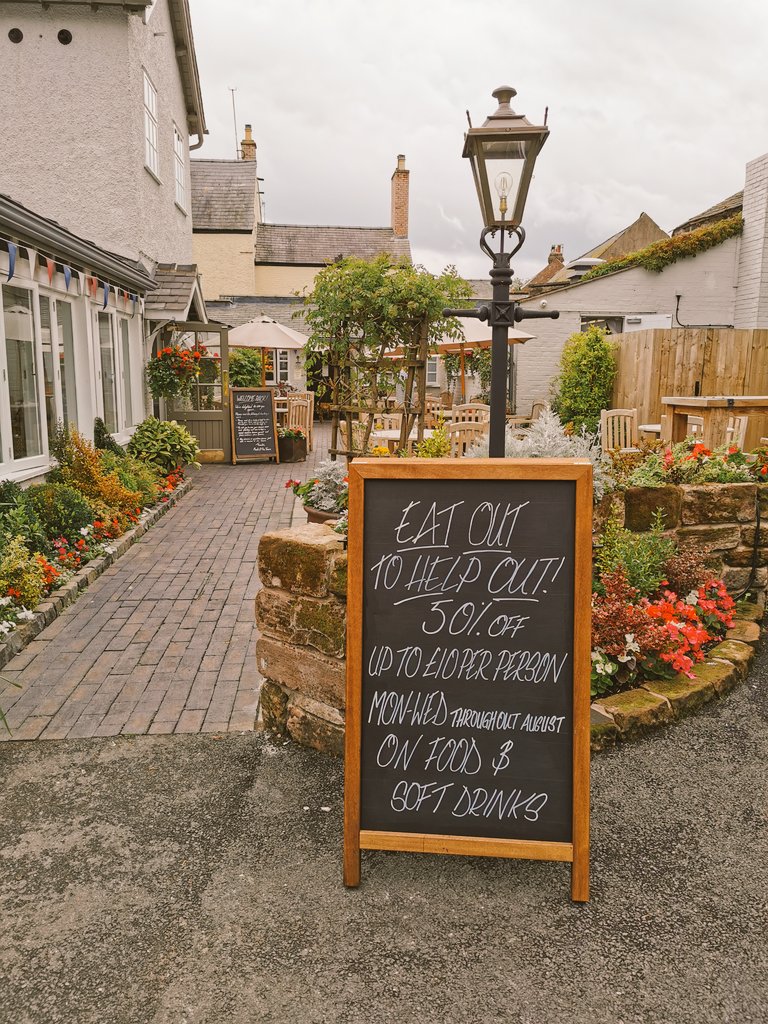 EAT OUT
TO HELP OUT!
50% OFF
UP TO £10 PER PERSON
MON-WED THROUGHOUT AUGUST
ON FOOD &
SOFT DRINKS
WELCOME BACK!